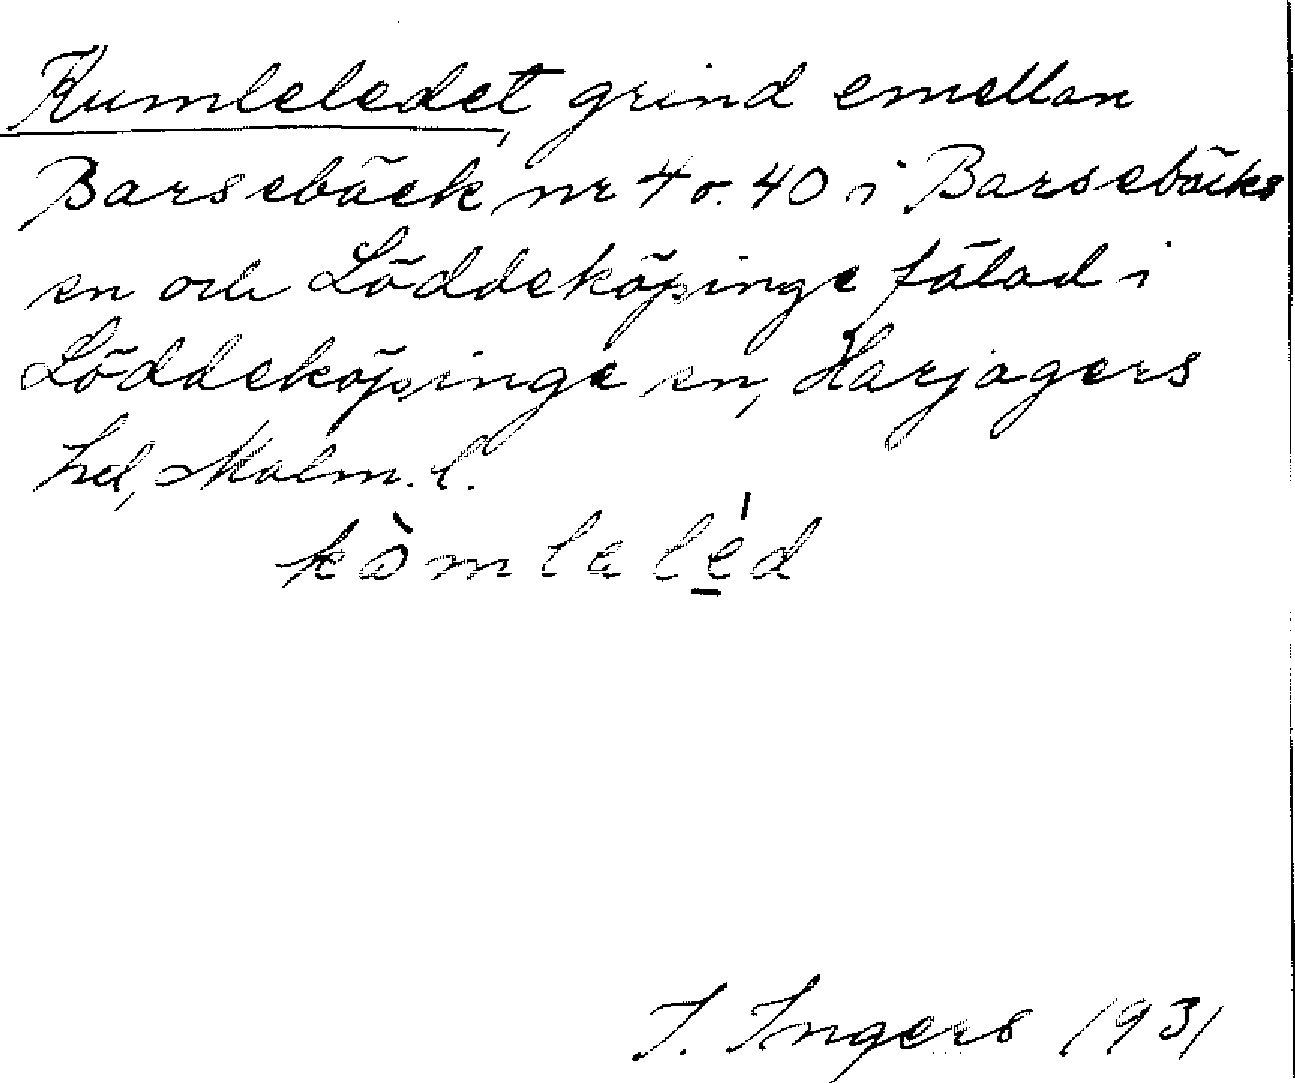 Kumleledet, grind emellan
Barsebäck nr 4 o. 40 i Barsebäcks
sn och Löddeköpinge fälad i
Löddeköpinge sn, Harjagers
hd, Malm. l.
kòmlaléd
I. Ingers 1931